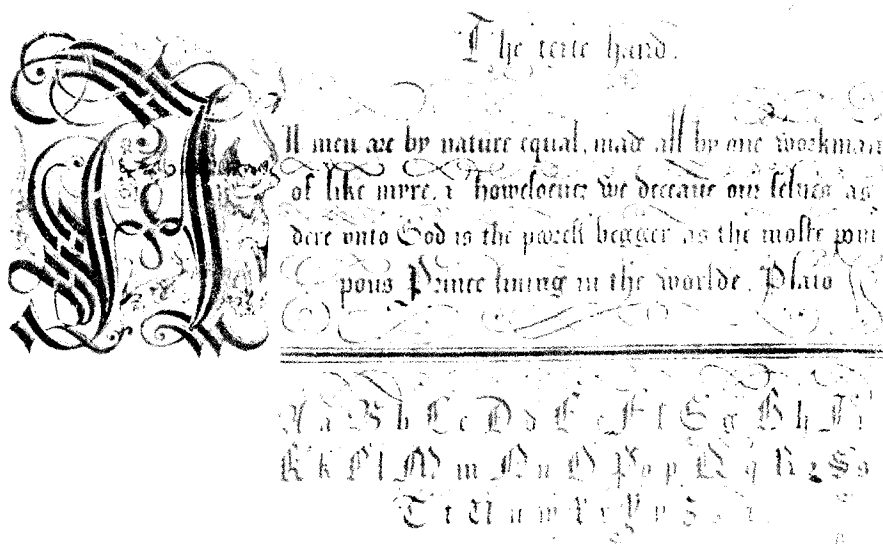 The texte hand.
All men are by nature equal, made all by one workman
of like myre, & howsoever we deceave our selves as
dere unto God is the poorest begger as the moste pom
pous Prince living in the worlde. Plato
A a B b C c D d E e F f G g H h I i
K k L l M m N n O P o p Q q R r S s
T t U u w X x Y y Z